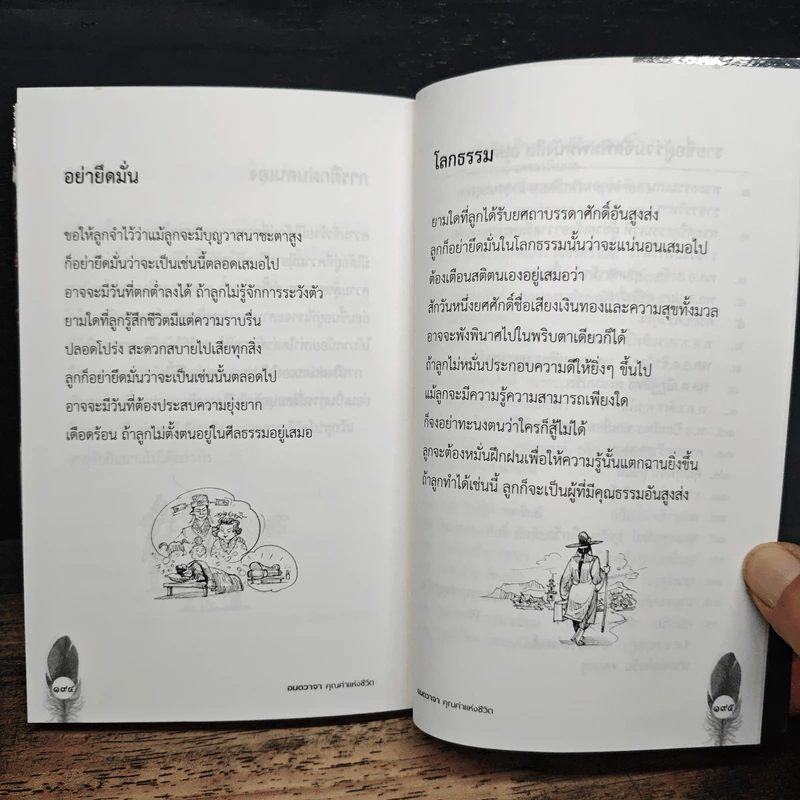 อย่ายึดมั่น
ขอให้ลูกจำไว้ว่าแม้ลูกจะมีบุญวาสนาชะตาสูง
ก็อย่ายึดมั่นว่าจะเป็นเช่นนี้ตลอดเสมอไป
อาจจะมีวันที่ตกต่ำลงได้ ถ้าลูกไม่รู้จักการระวังตัว
ยามใดที่ลูกรู้สึกชีวิตมีแต่ความราบรื่น
ปลอดโปร่ง สะดวกสบายไปเสียทุกสิ่ง
ลูกก็อย่ายึดมั่นว่าจะเป็นเช่นนั้นตลอดไป
อาจจะมีวันที่ต้องประสบความยุ่งยาก
เดือดร้อน ถ้าลูกไม่ตั้งตนอยู่ในศีลธรรมอยู่เสมอ
๑๙๔
อนตวาจา คุณค่าแห่งชีวิต
โลกธรรม
ยามใดที่ลูกได้รับยศถาบรรดาศักดิ์อันสูงส่ง
ลูกก็อย่ายึดมั่นในโลกธรรมนั้นว่าจะแน่นอนเสมอไป
ต้องเตือนสติตนเองอยู่เสมอว่า
สักวันหนึ่งยศศักดิ์ชื่อเสียงเงินทองและความสุขทั้งมวล
อาจจะพังพินาศไปในพริบตาเดียวก็ได้
ถ้าลูกไม่หมั่นประกอบความดีให้ยิ่งๆ ขึ้นไป
แม้ลูกจะมีความรู้ความสามารถเพียงใด
ก็จงอย่าทะนงตนว่าใครก็สู้ไม่ได้
ลูกจะต้องหมั่นฝึกฝนเพื่อให้ความรู้นั้นแตกฉานยิ่งขึ้น
ถ้าลูกทำได้เช่นนี้ ลูกก็จะเป็นผู้ที่มีคุณธรรมอันสูงส่ง
อนตวาจา คุณค่าแห่งชีวิต
๑๙๕